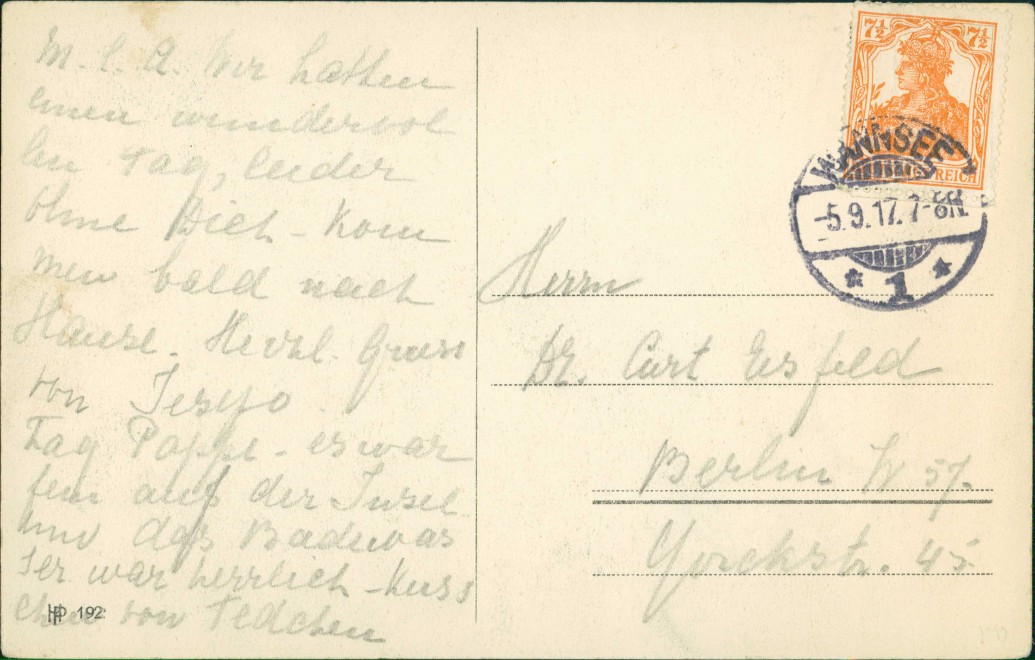 M. l. A. Wir hatten
einen wundervol
len Tag, leider
ohne Dich - Kom
men bald nach
Hause. Herzl. Gruss
von
Tag Pappi - es war
fein auf der Insel
und das Badewas
ser war herrlich - Küss
chen von Tedchen
HP 192
7½ 7½
REICH
WANNSEE
-5.9.17. 7-8N.
* 1 *
Herrn
Dr. Curt Eisfeld
Berlin W 57.
Yorckstr. 45